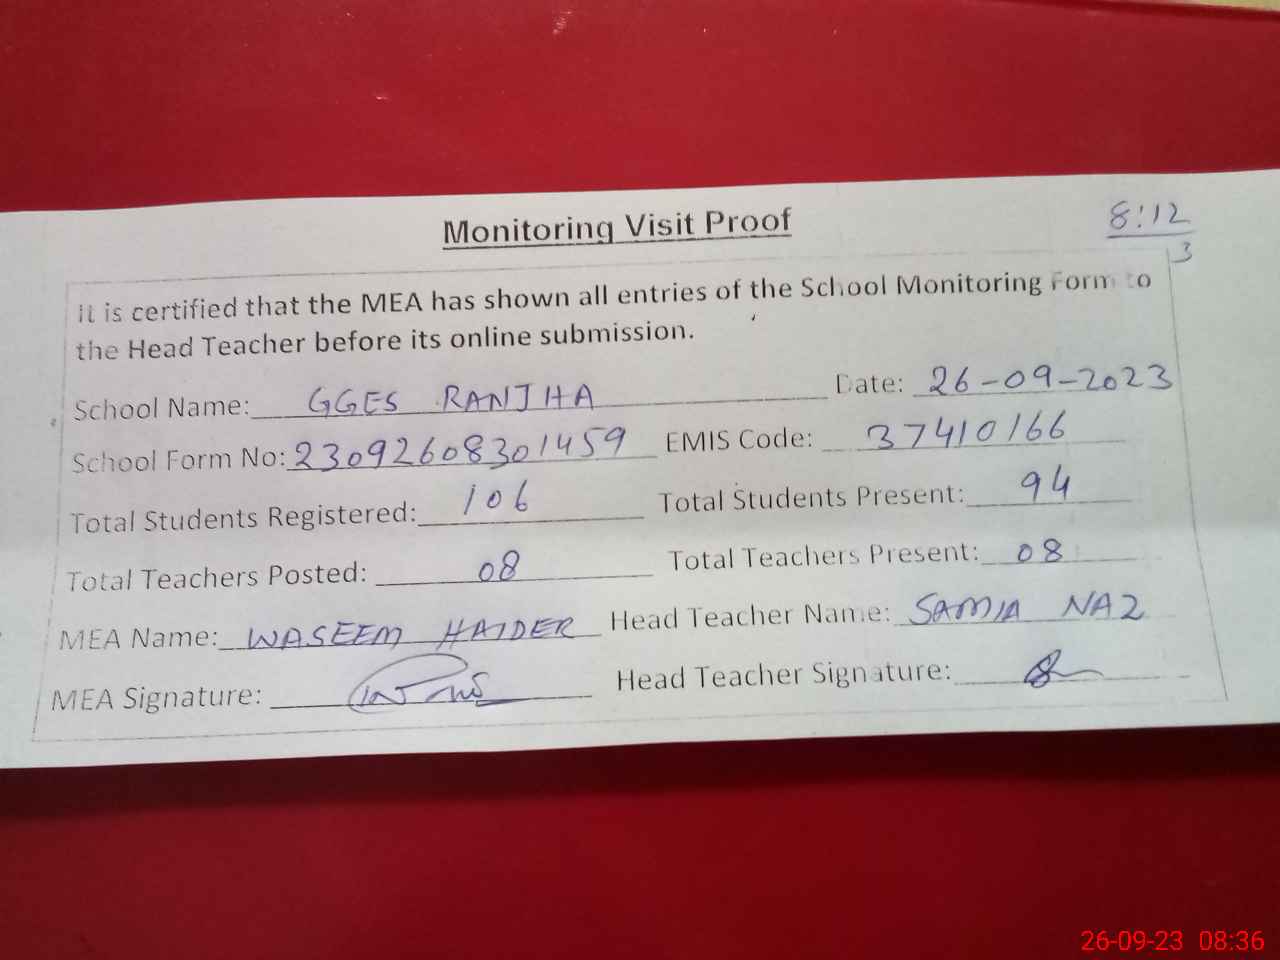 Monitoring Visit Proof
8:12
3
It is certified that the MEA has shown all entries of the School Monitoring Form to
the Head Teacher before its online submission.
School Name: GGES RANJHA Date: 26-09-2023
School Form No: 23092608301459 EMIS Code: 37410166
Total Students Registered: 106 Total Students Present: 94
Total Teachers Posted: 08 Total Teachers Present: 08
MEA Name: WASEEM HAIDER Head Teacher Name: SAMIA NAZ
MEA Signature: Head Teacher Signature:
26-09-23 08:36